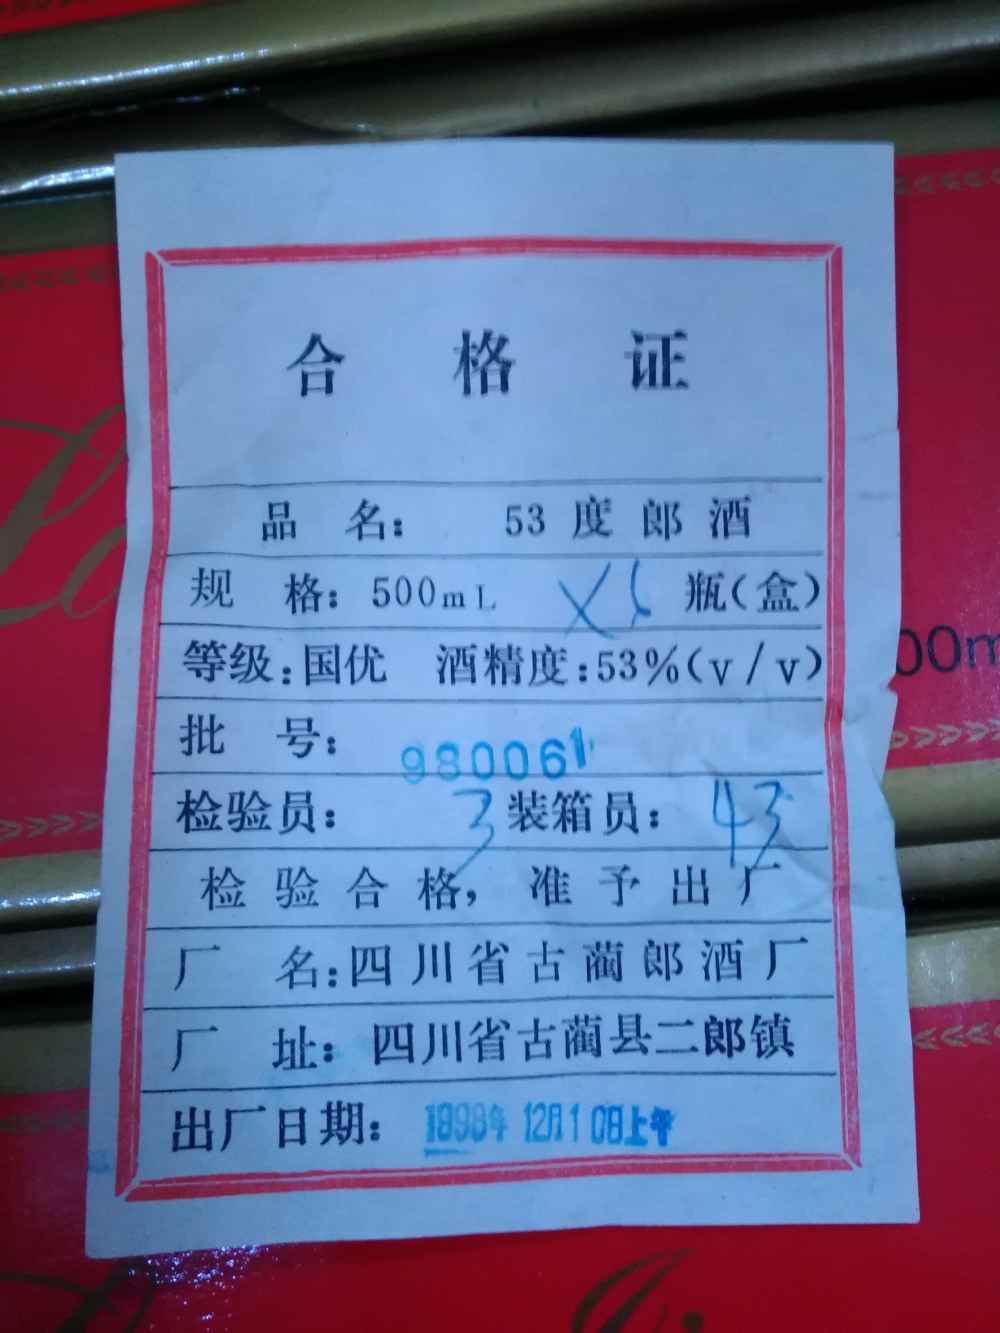 合格证
品 名: 53度郎酒
规 格: 500mL ×5 瓶(盒)
等级:国优 酒精度:53%(v/v)
批 号: 980061
检验员: 3 装箱员: 43
检验合格,准予出厂
厂 名:四川省古蔺郎酒厂
厂 址: 四川省古蔺县二郎镇
出厂日期: 1998年12月10日上午
00m